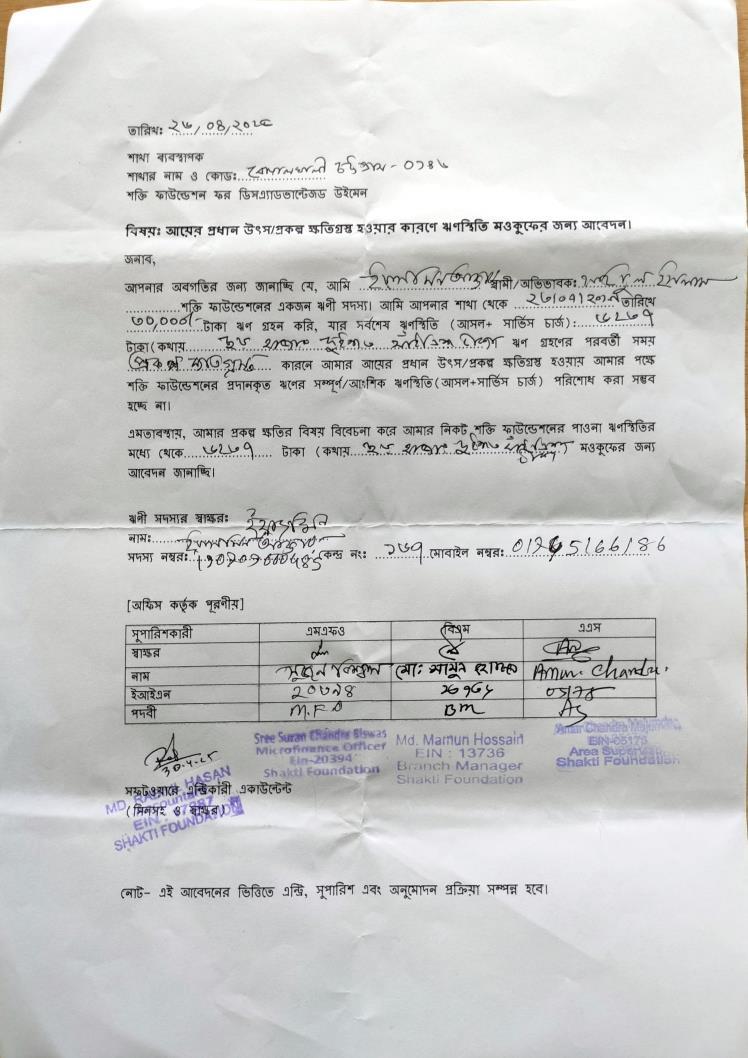 তারিখঃ ২৬/০৪/২০২৫
শাখা ব্যবস্থাপক
শাখার নাম ও কোডঃ বোয়ালখালী চট্টগ্রাম - ০১৪৬
শক্তি ফাউন্ডেশন ফর ডিসএ্যাডভান্টেজড উইমেন
বিষয়ঃ আয়ের প্রধান উৎস/প্রকল্প ক্ষতিগ্রস্থ হওয়ার কারণে ঋণস্থিতি মওকুফের জন্য আবেদন।
জনাব,
আপনার অবগতির জন্য জানাচ্ছি যে, আমি ইয়াসমিন আক্তার স্বামী/অভিভাবকঃ ইসলাম
শক্তি ফাউন্ডেশনের একজন ঋণী সদস্য। আমি আপনার শাখা থেকে তারিখে
৩০,০০০/- টাকা ঋণ গ্রহন করি, যার সর্বশেষ ঋণস্থিতি (আসল+ সার্ভিস চার্জ): ৬২৩৭
টাকা(কথায় ছয় হাজার দুইশত সাইত্রিশ টাকা ঋণ গ্রহণের পরবর্তী সময়
প্রকল্প ক্ষতিগ্রস্ত কারনে আমার আয়ের প্রধান উৎস/প্রকল্প ক্ষতিগ্রস্থ হওয়ায় আমার পক্ষে
শক্তি ফাউন্ডেশনের প্রদানকৃত ঋণের সম্পূর্ণ/আংশিক ঋণস্থিতি(আসল+সার্ভিস চার্জ) পরিশোধ করা সম্ভব
হচ্ছে না।
এমতাবস্থায়, আমার প্রকল্প ক্ষতির বিষয় বিবেচনা করে আমার নিকট শক্তি ফাউন্ডেশনের পাওনা ঋণস্থিতির
মধ্যে থেকে ৬২৩৭ টাকা (কথায় ছয় হাজার দুইশত সাইত্রিশ টাকা মওকুফের জন্য
আবেদন জানাচ্ছি।
ঋণী সদস্যর স্বাক্ষরঃ ইয়াছমিন
নামঃ ইয়াসমিন আক্তার
সদস্য নম্বরঃ কেন্দ্র নংঃ ১৬৭ মোবাইল নম্বরঃ
[অফিস কর্তৃক পূরণীয়]
সুপারিশকারী এমএফও বিএম এএস
স্বাক্ষর
নাম সুজন বিশ্বাস মোঃ মামুন হোসেন Amar Chandra
ইআইএন ২০৩৯৪ ১৩৭৩৬ 05178
পদবী M.F.O BM AS
30.4.25
Sree Suzan Chandra Biswas
Microfinance Officer
Ein-20394
Shakti Foundation
Md. Mamun Hossain
EIN : 13736
Branch Manager
Shakti Foundation
Amar Chandra Majumder
EIN-05178
Area Supervisor
Shakti Foundation
সফটওয়ারে এন্ট্রিকারী একাউন্টেন্ট
(সিলসহ ও স্বাক্ষর)
MD. HASAN
Accountant
EIN
SHAKTI FOUNDATION
নোট- এই আবেদনের ভিত্তিতে এন্ট্রি, সুপারিশ এবং অনুমোদন প্রক্রিয়া সম্পন্ন হবে।